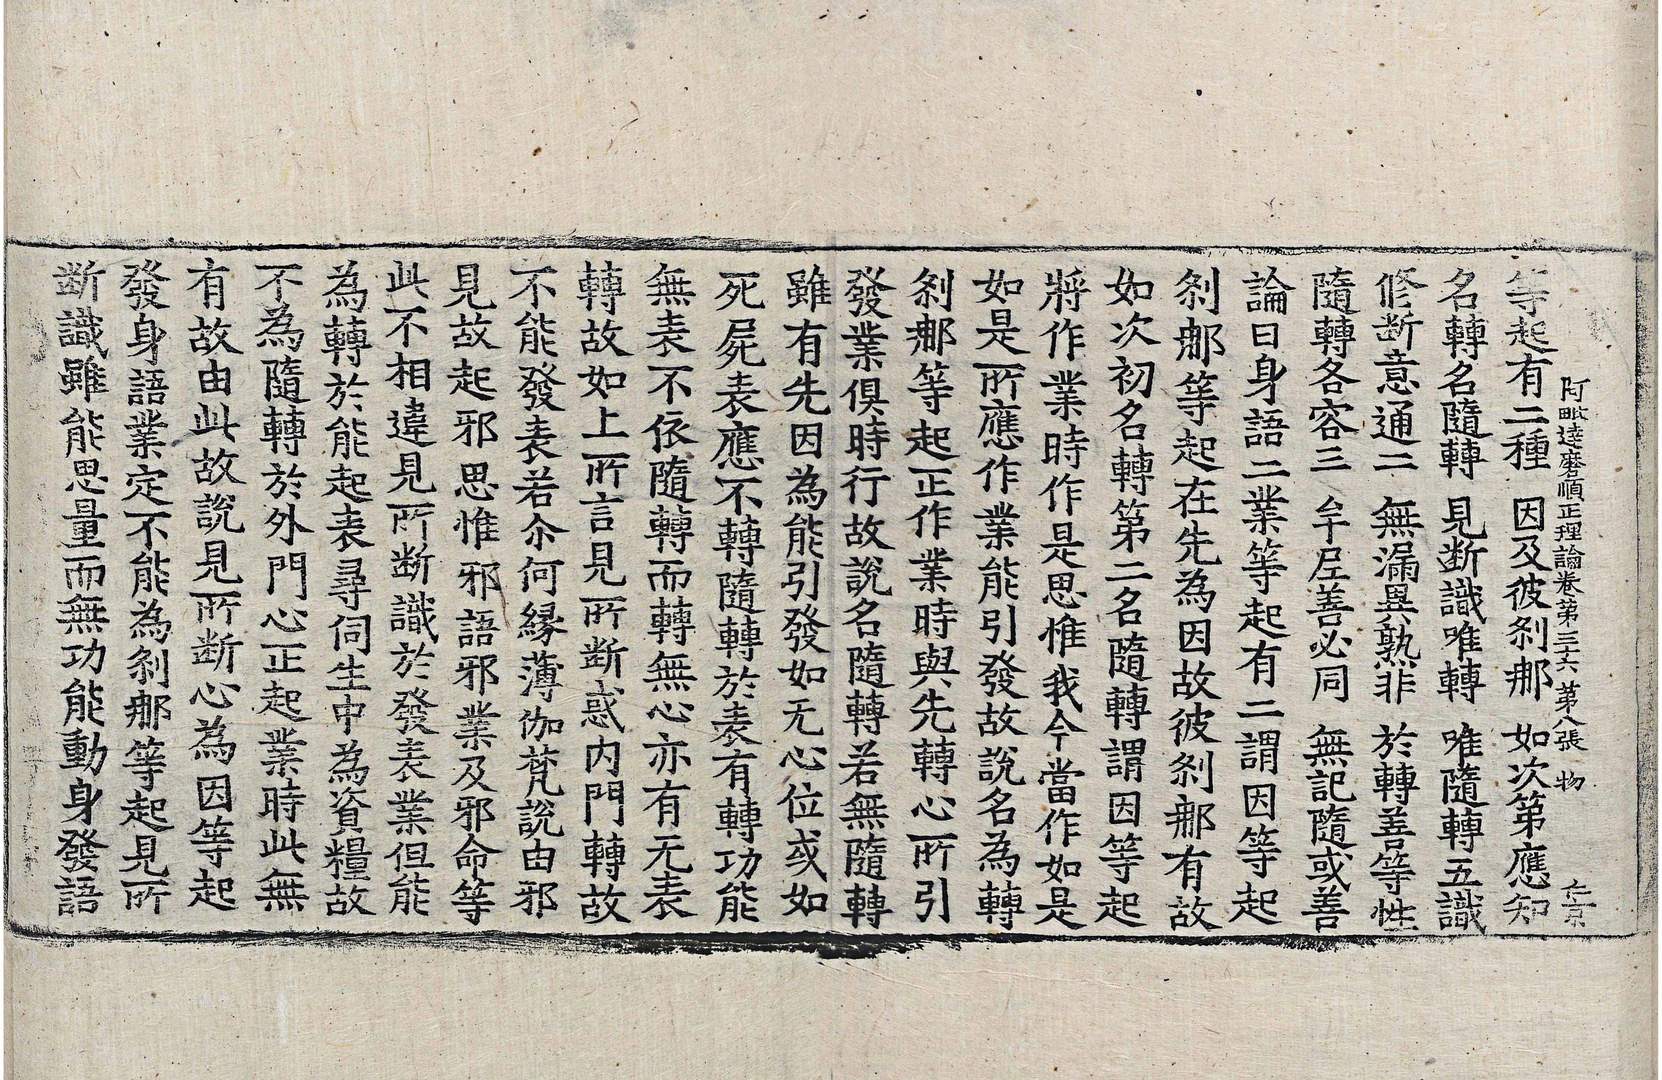 阿毗達磨順正理論卷第三十六 第八張 物 仁京
等起有二種 因及彼刹那 如次第應知
名轉名隨轉 見斷識唯轉 唯隨轉五識
修斷意通二 無漏異熟非 於轉善等性
隨轉各容三 牟尼善必同 無記隨或善
論曰身語二業等起有二謂因等起
刹那等起在先為因故彼刹那有故
如次初名轉第二名隨轉謂因等起
將作業時作是思惟我今當作如是
如是所應作業能引發故說名為轉
刹那等起正作業時與先轉心所引
發業俱時行故說名隨轉若無隨轉
雖有先因為能引發如无心位或如
死屍表應不轉隨轉於表有轉功能
無表不依隨轉而轉無心亦有无表
轉故如上所言見所斷惑内門轉故
不能發表若尒何縁薄伽梵說由邪
見故起邪思惟邪語邪業及邪命等
此不相違見所斷識於發表業但能
為轉於能起表尋伺生中為資糧故
不為隨轉於外門心正起業時此無
有故由此故說見所断心為因等起
發身語業定不能為刹那等起見所
断識雖能思量而無功能動身發語